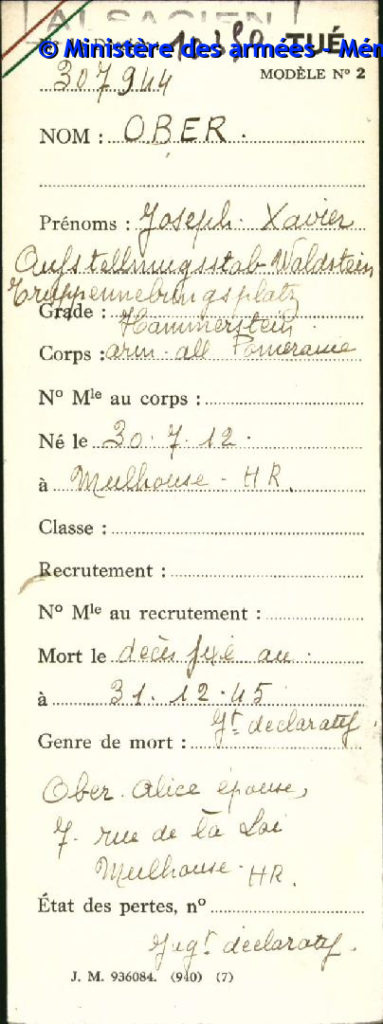 ALSACIEN
© Ministère des armées - Mém
TUÉ
307944
MODÈLE Nº 2
NOM : OBER.
Prénoms : Joseph. Xavier
Aufstellungsstab-Waldstein
Truppenuebungsplatz
Grade : Hammerstein.
Corps : arm. all Pomeranie
Nº Mle au corps :
Né le 30.7.12.
à Mulhouse - HR.
Classe :
Recrutement :
Nº Mle au recrutement :
Mort le décès fixé au.
à 31.12.45
Jt déclaratif.
Genre de mort :
Ober. Alice épouse,
7. rue de la Loi
Mulhouse. HR.
État des pertes, nº
Jugt déclaratif.
J. M. 936084. (940) (7)